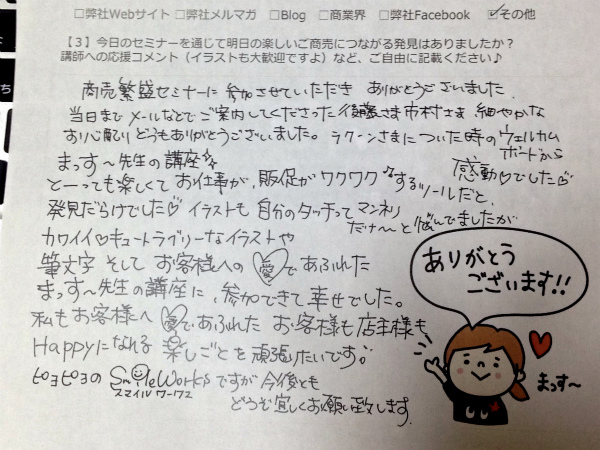 □弊社Webサイト □弊社メルマガ □Blog □商業界 □弊社Facebook ☑その他
【3】今日のセミナーを通じて明日の楽しいご商売につながる発見はありましたか？
講師への応援コメント（イラストも大歓迎ですよ）など、ご自由に記載ください♪
商売繁盛セミナーに 参加させていただき ありがとうございました
当日まで メールなどで ご案内してくださった さま市村さま 細やかな
お心配り どうもありがとうございました。ラクーンさまについた時のウェルカム
ボードから
感動♡でした♡
まっす～先生の講座☆
とーっても楽しくて お仕事が、販促が ワクワク♪するツールだと、
発見だらけでした♡ イラストも 自分のタッチって マンネリ
だな～と悩んでましたが
カワイイ♡キュートラブリーなイラストや
筆文字 そして お客様への 愛 であふれた
まっす～先生の講座に、参加できて 幸せでした。
私もお客様へ 愛であふれた お客様も店主様も
Happyになれる 楽しごとを 頑張りたいです。
ピヨピヨの SmileWorksですが 今後とも
スマイルワークス
どうぞ宜しくお願い致します。
ありがとう
ございます!!
まっす～
ち